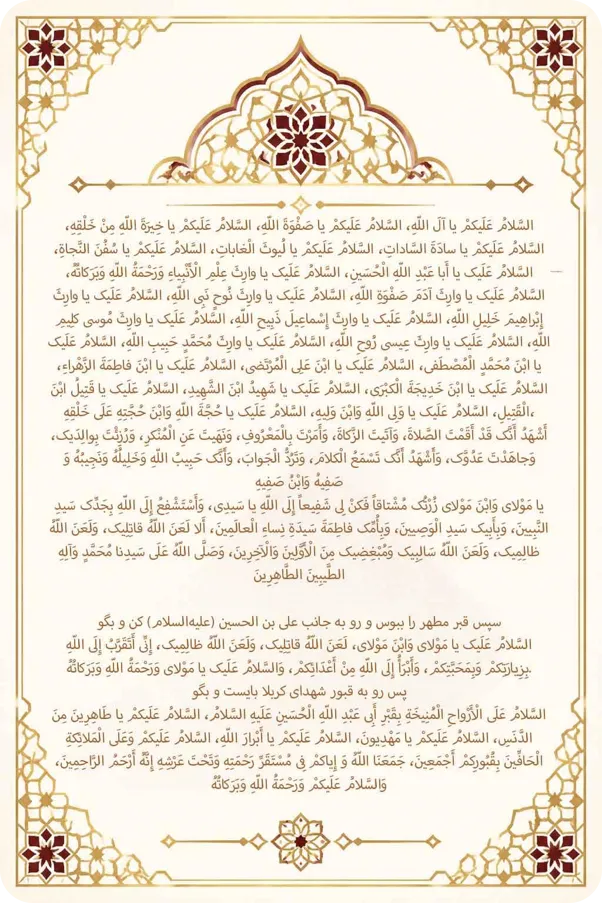 السَّلامُ عَلَيكمْ يا آلَ اللّهِ، السَّلامُ عَلَيكمْ يا صَفْوَةَ اللّهِ، السَّلامُ عَلَيكمْ يا خِيرَةَ اللّهِ مِنْ خَلْقِهِ،
السَّلامُ عَلَيكمْ يا سادَةَ السَّاداتِ، السَّلامُ عَلَيكمْ يا لُيوثَ الْغاباتِ، السَّلامُ عَلَيكمْ يا سُفُنَ النَّجاةِ،
السَّلامُ عَلَيك يا أَبا عَبْدِ اللّهِ الْحُسَينِ، السَّلامُ عَلَيك يا وارِثَ عِلْمِ الْأَنْبِياءِ وَرَحْمَةُ اللّهِ وَبَرَكاتُهُ،
السَّلامُ عَلَيك يا وارِثَ آدَمَ صَفْوَةِ اللّهِ، السَّلامُ عَلَيك يا وارِثَ نُوحٍ نَبِي اللّهِ، السَّلامُ عَلَيك يا وارِثَ
إِبْراهِيمَ خَلِيلِ اللّهِ، السَّلامُ عَلَيك يا وارِثَ إِسْماعِيلَ ذَبِيحِ اللّهِ، السَّلامُ عَلَيك يا وارِثَ مُوسى كلِيمِ
اللّهِ، السَّلامُ عَلَيك يا وارِثَ عِيسى رُوحِ اللّهِ، السَّلامُ عَلَيك يا وارِثَ مُحَمَّدٍ حَبِيبِ اللّهِ، السَّلامُ عَلَيك
يا ابْنَ مُحَمَّدٍ الْمُصْطَفى، السَّلامُ عَلَيك يا ابْنَ عَلِي الْمُرْتَضى، السَّلامُ عَلَيك يا ابْنَ فاطِمَةَ الزَّهْراءِ،
السَّلامُ عَلَيك يا ابْنَ خَدِيجَةَ الْكبْرَى، السَّلامُ عَلَيك يا شَهِيدُ ابْنَ الشَّهِيدِ، السَّلامُ عَلَيك يا قَتِيلُ ابْنَ
الْقَتِيلِ، السَّلامُ عَلَيك يا وَلِي اللّهِ وَابْنَ وَلِيهِ، السَّلامُ عَلَيك يا حُجَّةَ اللّهِ وَابْنَ حُجَّتِهِ عَلَى خَلْقِهِ،
أَشْهَدُ أَنَّك قَدْ أَقَمْتَ الصَّلاةَ، وَآتَيتَ الزَّكاةَ، وَأَمَرْتَ بِالْمَعْرُوفِ، وَنَهَيتَ عَنِ الْمُنْكرِ، وَرُزِئْتَ بِوالِدَيك،
وَجاهَدْتَ عَدُوَّك، وَأَشْهَدُ أَنَّك تَسْمَعُ الْكلامَ، وَتَرُدُّ الْجَوابَ، وَأَنَّك حَبِيبُ اللّهِ وَخَلِيلُهُ وَنَجِيبُهُ وَ
صَفِيهُ وَابْنُ صَفِيهِ
يا مَوْلای وَابْنَ مَوْلای زُرْتُك مُشْتاقاً فَكنْ لِی شَفِيعاً إِلَى اللّهِ يا سَيدِی، وَأَسْتَشْفِعُ إِلَى اللّهِ بِجَدِّك سَيدِ
النَّبِيينَ، وَبِأَبِيك سَيدِ الْوَصِيينَ، وَبِأُمِّك فاطِمَةَ سَيدَةِ نِساءِ الْعالَمِينَ، أَلا لَعَنَ اللّهُ قاتِلِيك، وَلَعَنَ اللّهُ
ظالِمِيك، وَلَعَنَ اللّهُ سالِبِيك وَمُبْغِضِيك مِنَ الْأَوَّلِينَ وَالْآخِرِينَ، وَصَلَّى اللّهُ عَلَى سَيدِنا مُحَمَّدٍ وَآلِهِ
الطَّيبِينَ الطَّاهِرِينَ
سپس قبر مطهر را ببوس و رو به جانب علی بن الحسین (علیه‌السلام) کن و بگو
السَّلامُ عَلَيك يا مَوْلای وَابْنَ مَوْلای، لَعَنَ اللّهُ قاتِلِيك، وَلَعَنَ اللّهُ ظالِمِيك، إِنِّی أَتَقَرَّبُ إِلَى اللّهِ
بِزِيارَتِكمْ وَبِمَحَبَّتِكمْ، وَأَبْرَأُ إِلَى اللّهِ مِنْ أَعْدَائِكمْ، وَالسَّلامُ عَلَيك يا مَوْلای وَرَحْمَةُ اللّهِ وَبَرَكاتُهُ.
پس رو به قبور شهدای کربلا بایست و بگو
السَّلامُ عَلَى الْأَرْواحِ الْمُنِيخَةِ بِقَبْرِ أَبِی عَبْدِ اللّهِ الْحُسَينِ عَلَيهِ السَّلامُ، السَّلامُ عَلَيكمْ يا طاهِرِينَ مِنَ
الدَّنَسِ، السَّلامُ عَلَيكمْ يا مَهْدِيونَ، السَّلامُ عَلَيكمْ يا أَبْرارَ اللّهِ، السَّلامُ عَلَيكمْ وَعَلَى الْمَلائِكةِ
الْحَافِّينَ بِقُبُورِكمْ أَجْمَعِينَ، جَمَعَنَا اللّهُ وَ إِياكمْ فِی مُسْتَقَرِّ رَحْمَتِهِ وَتَحْتَ عَرْشِهِ إِنَّهُ أَرْحَمُ الرَّاحِمِينَ،
وَالسَّلامُ عَلَيكمْ وَرَحْمَةُ اللّهِ وَبَرَكاتُهُ